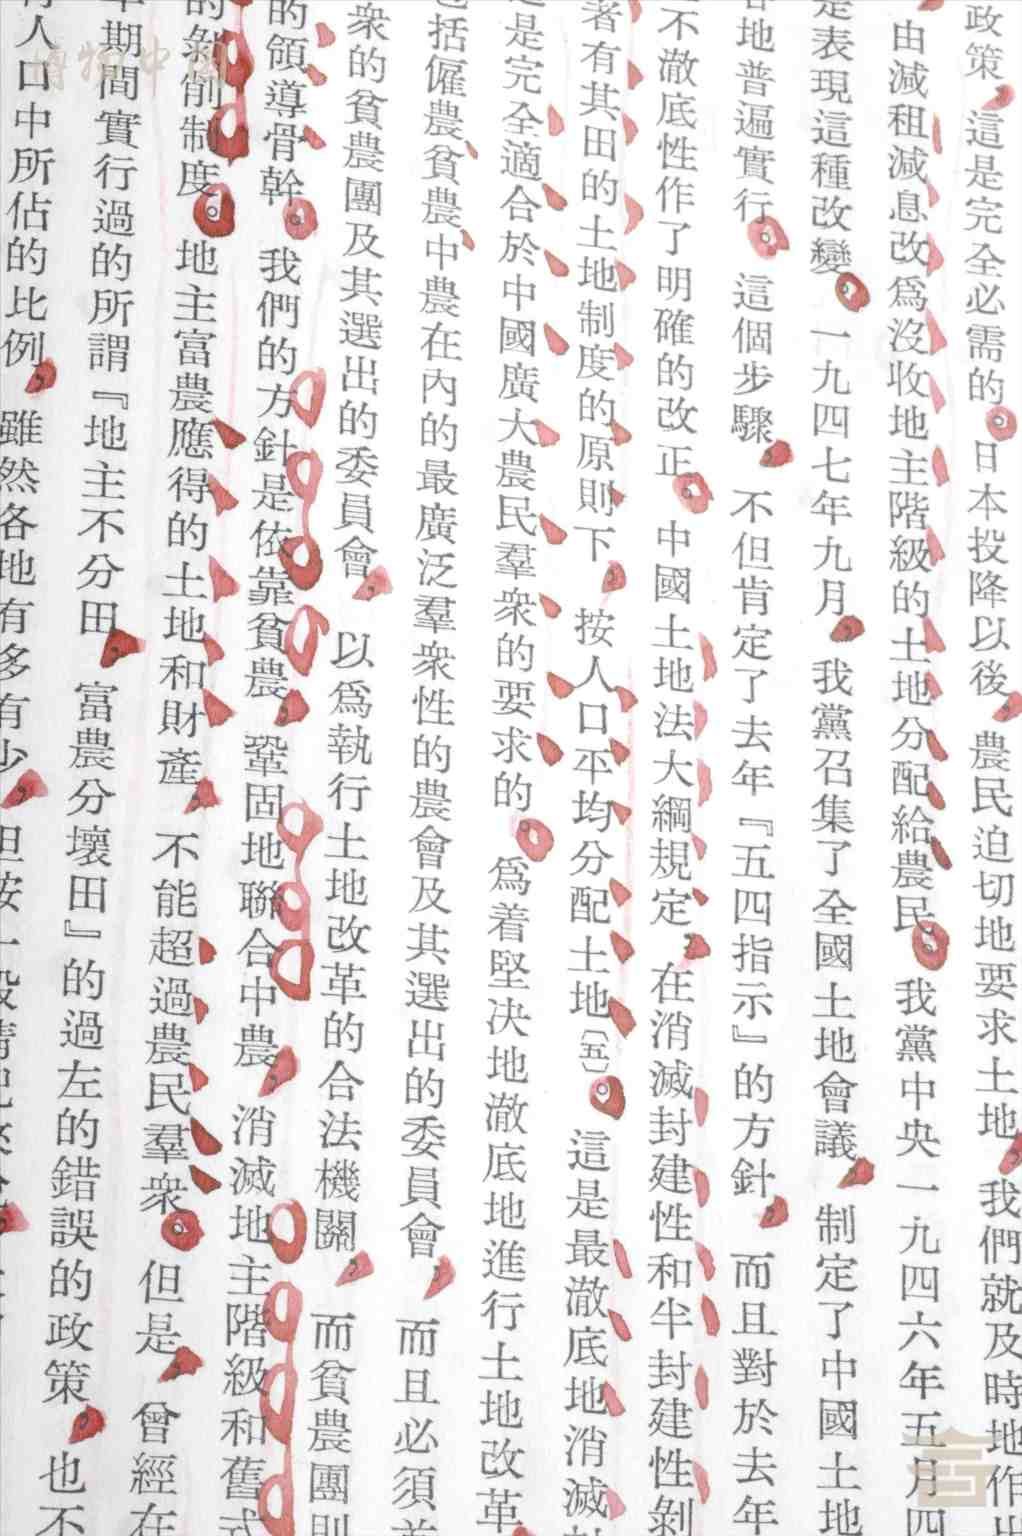 政策，這是完全必需的。日本投降以後，農民迫切地要求土地，我們就及時地作出
由減租減息改爲沒收地主階級的土地分配給農民。我黨中央一九四六年五月四
是表現這種改變。一九四七年九月，我黨召集了全國土地會議，制定了中國土地
各地普遍實行。這個步驟，不但肯定了去年『五四指示』的方針，而且對於去年
不澈底性作了明確的改正。中國土地法大綱規定，在消滅封建性和半封建性剝
著有其田的土地制度的原則下，按人口平均分配土地〔五〕。這是最澈底地消滅
是完全適合於中國廣大農民羣衆的要求的。爲着堅決地澈底地進行土地改革
括僱農、貧農、中農在內的最廣泛羣衆性的農會及其選出的委員會，而且必須
衆的貧農團及其選出的委員會，以爲執行土地改革的合法機關，而貧農團則
的領導骨幹。我們的方針是依靠貧農，鞏固地聯合中農，消滅地主階級和舊式
的剝削制度。地主富農應得的土地和財產，不能超過農民羣衆。但是，曾經在
年期間實行過的所謂『地主不分田，富農分壞田』的過左的錯誤的政策，也不
人口中所佔的比例，雖然各地有多有少，但按一般情
博物中国